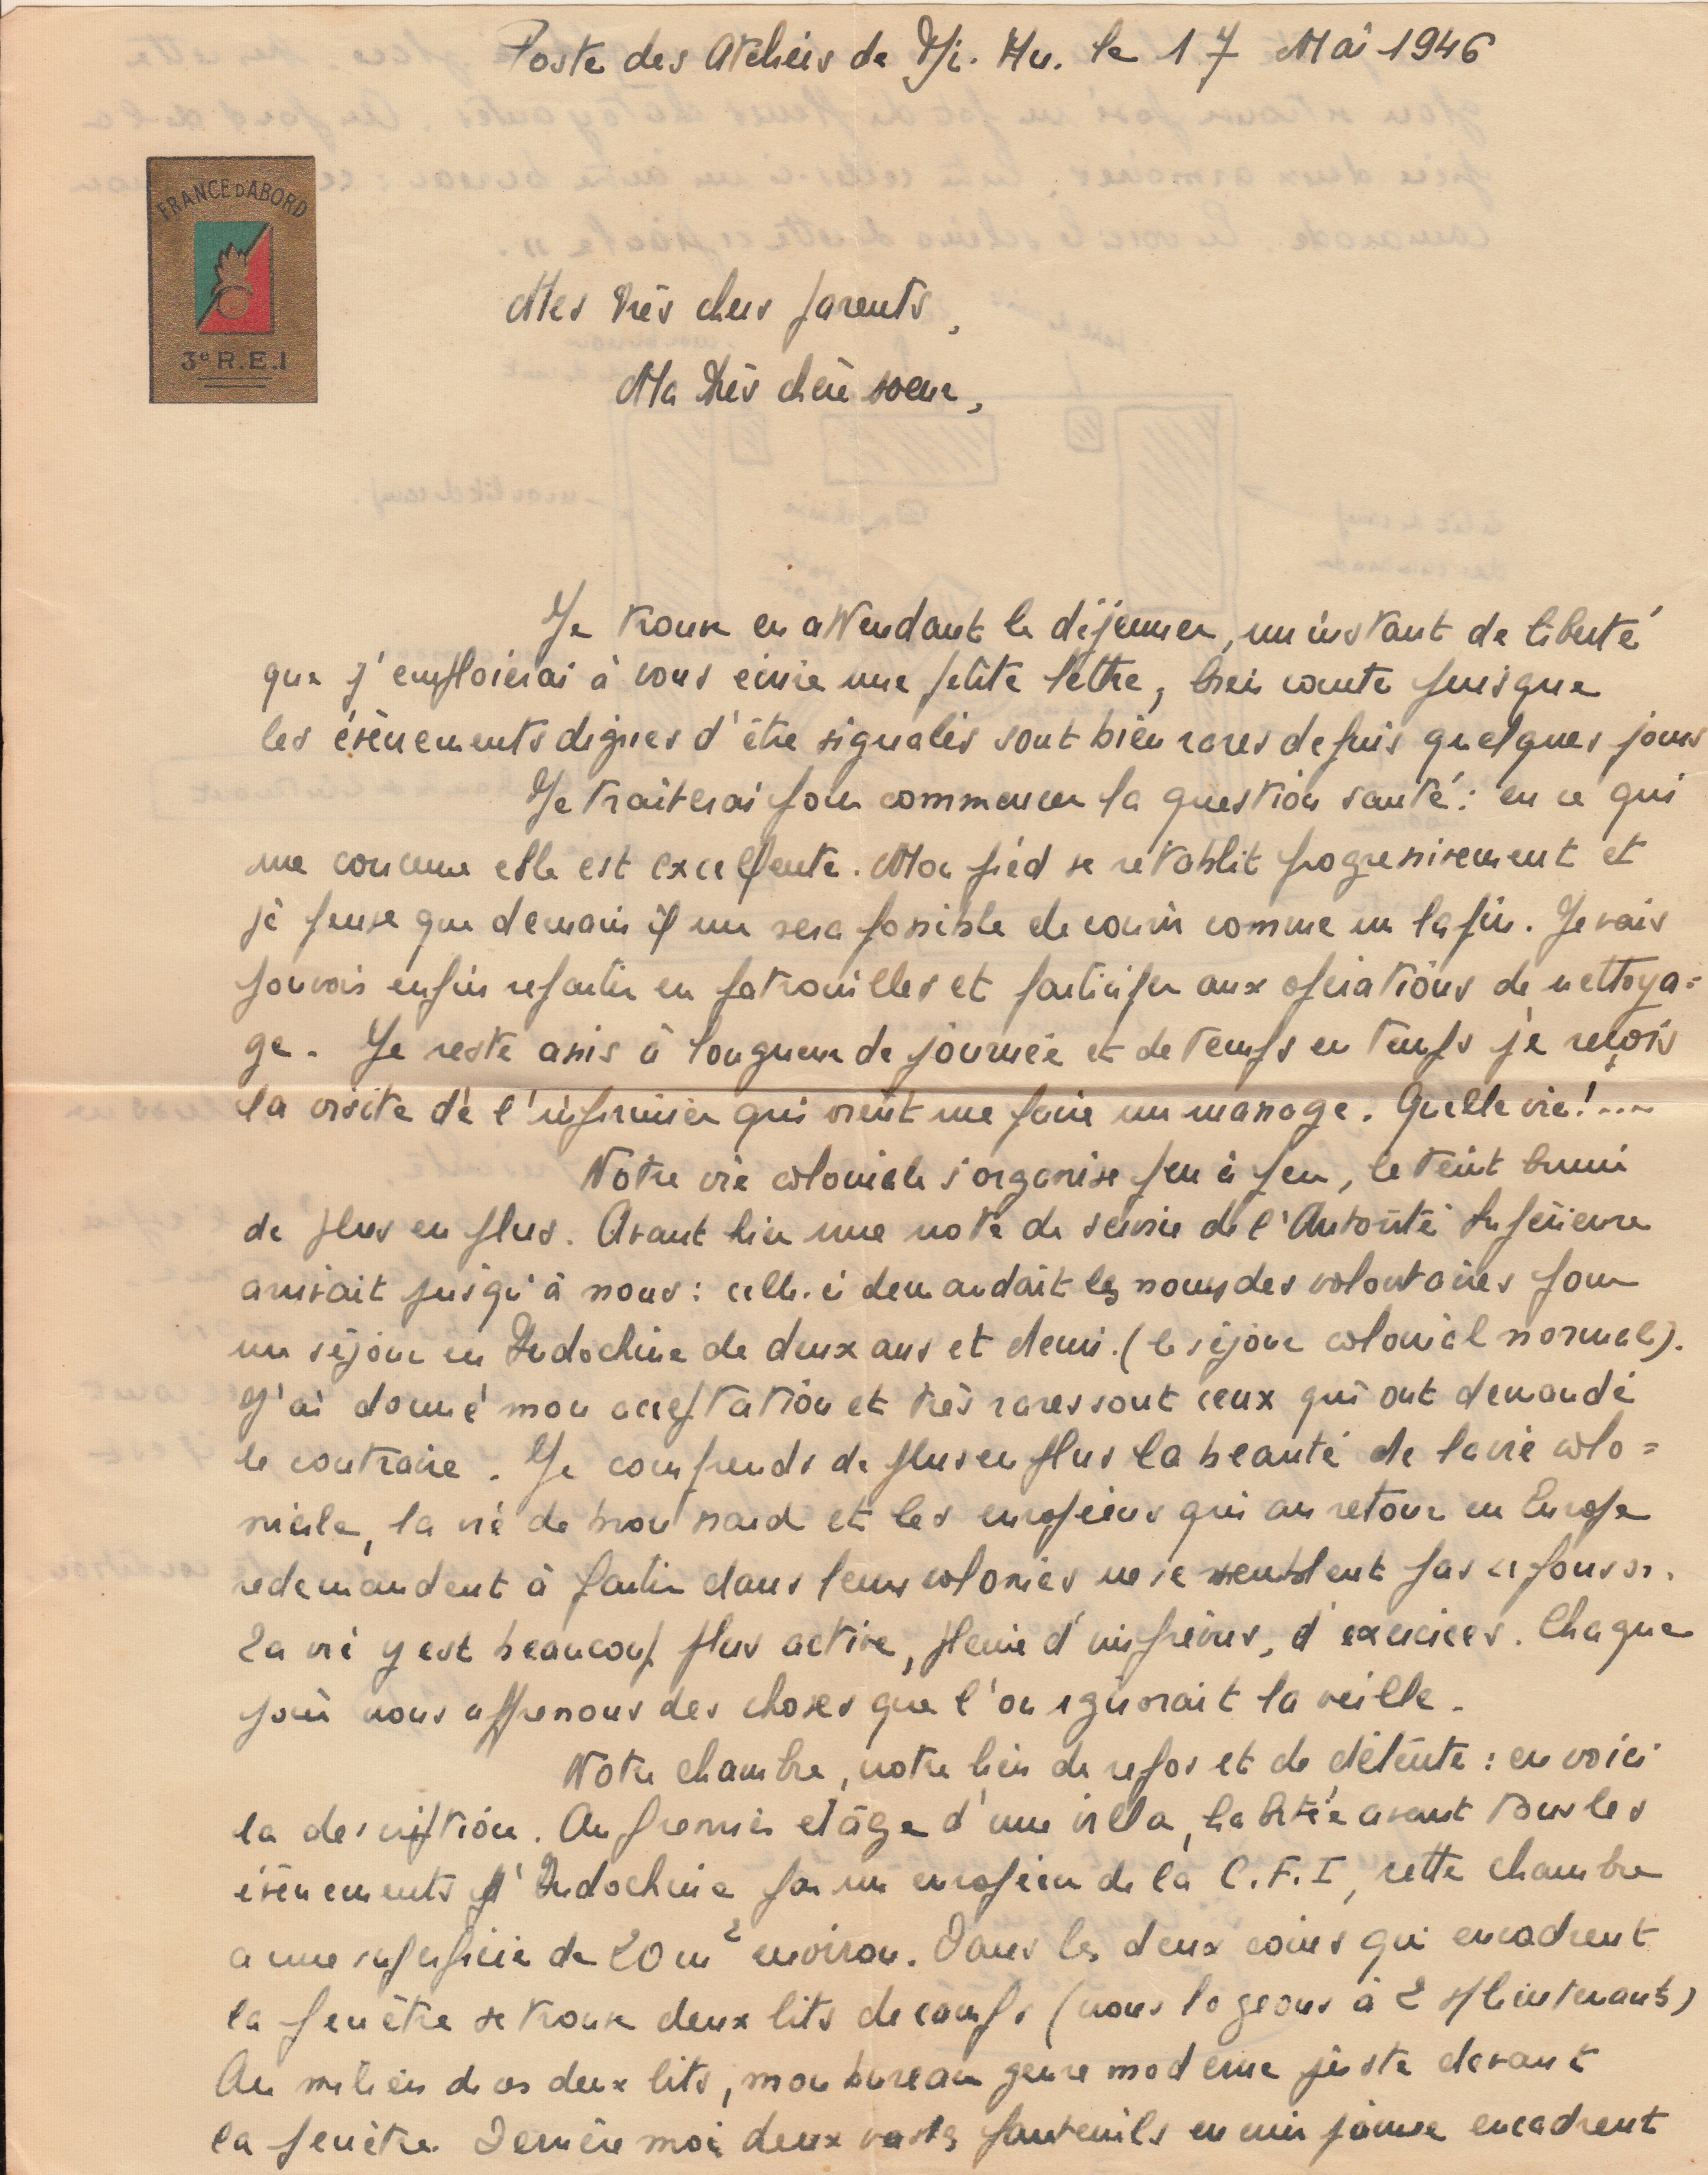 Poste des Ateliers de Di. An. le 17 Mai 1946
FRANCE D'ABORD
3e R.E.I
Mes très chers parents,
Ma très chère soeur,
Je trouve en attendant le déjeuner, un instant de liberté
que j'emploierai à vous écrire une petite lettre, bien courte puisque
les évènements dignes d'être signalés sont bien rares depuis quelques jours
Je traiterai pour commencer la question santé : en ce qui
me concerne elle est excellente. Mon pied se rétablit progressivement et
je pense que demain il me sera possible de courir comme un lapin. Je vais
pouvoir enfin repartir en patrouilles et participer aux opérations de nettoya=
ge. Je reste assis à longueur de journée et de temps en temps je reçois
la visite de l'infirmier qui vient me faire un massage. Quelle vie!....
Notre vie coloniale s'organise peu à peu, le teint bruni
de plus en plus. Avant hier une note de service de l'Autorité Supérieure
arrivait jusqu'à nous : celle-ci demandait les noms des volontaires pour
un séjour en Indochine de deux ans et demi. (le séjour colonial normal).
J'ai donné mon acceptation et très rares sont ceux qui ont demandé
le contraire. Je comprends de plus en plus la beauté de la vie colo=
niale, la vie de brousse et les européens qui au retour en Europe
redemandent à partir dans leurs colonies ne me semblent pas "fous".
La vie y est beaucoup plus active, pleine d'imprévus, d'exercices. Chaque
jour nous apprenons des choses que l'on ignorait la veille.
Notre chambre, notre lieu de repos et de détente : en voici
la description. Au premier etâge d'une villa, habitée avant tous les
évènements d'Indochine par un européen de la C.F.I, cette chambre
a une superficie de 20 m2 environ. Dans les deux coins qui encadrent
la fenêtre se trouve deux lits de camps (nous logeons à 2 s/lieutenants)
Au milieu de ces deux lits, mon bureau genre moderne juste devant
la fenêtre. Derrière moi deux vastes fauteuils en cuir jaune encadrent